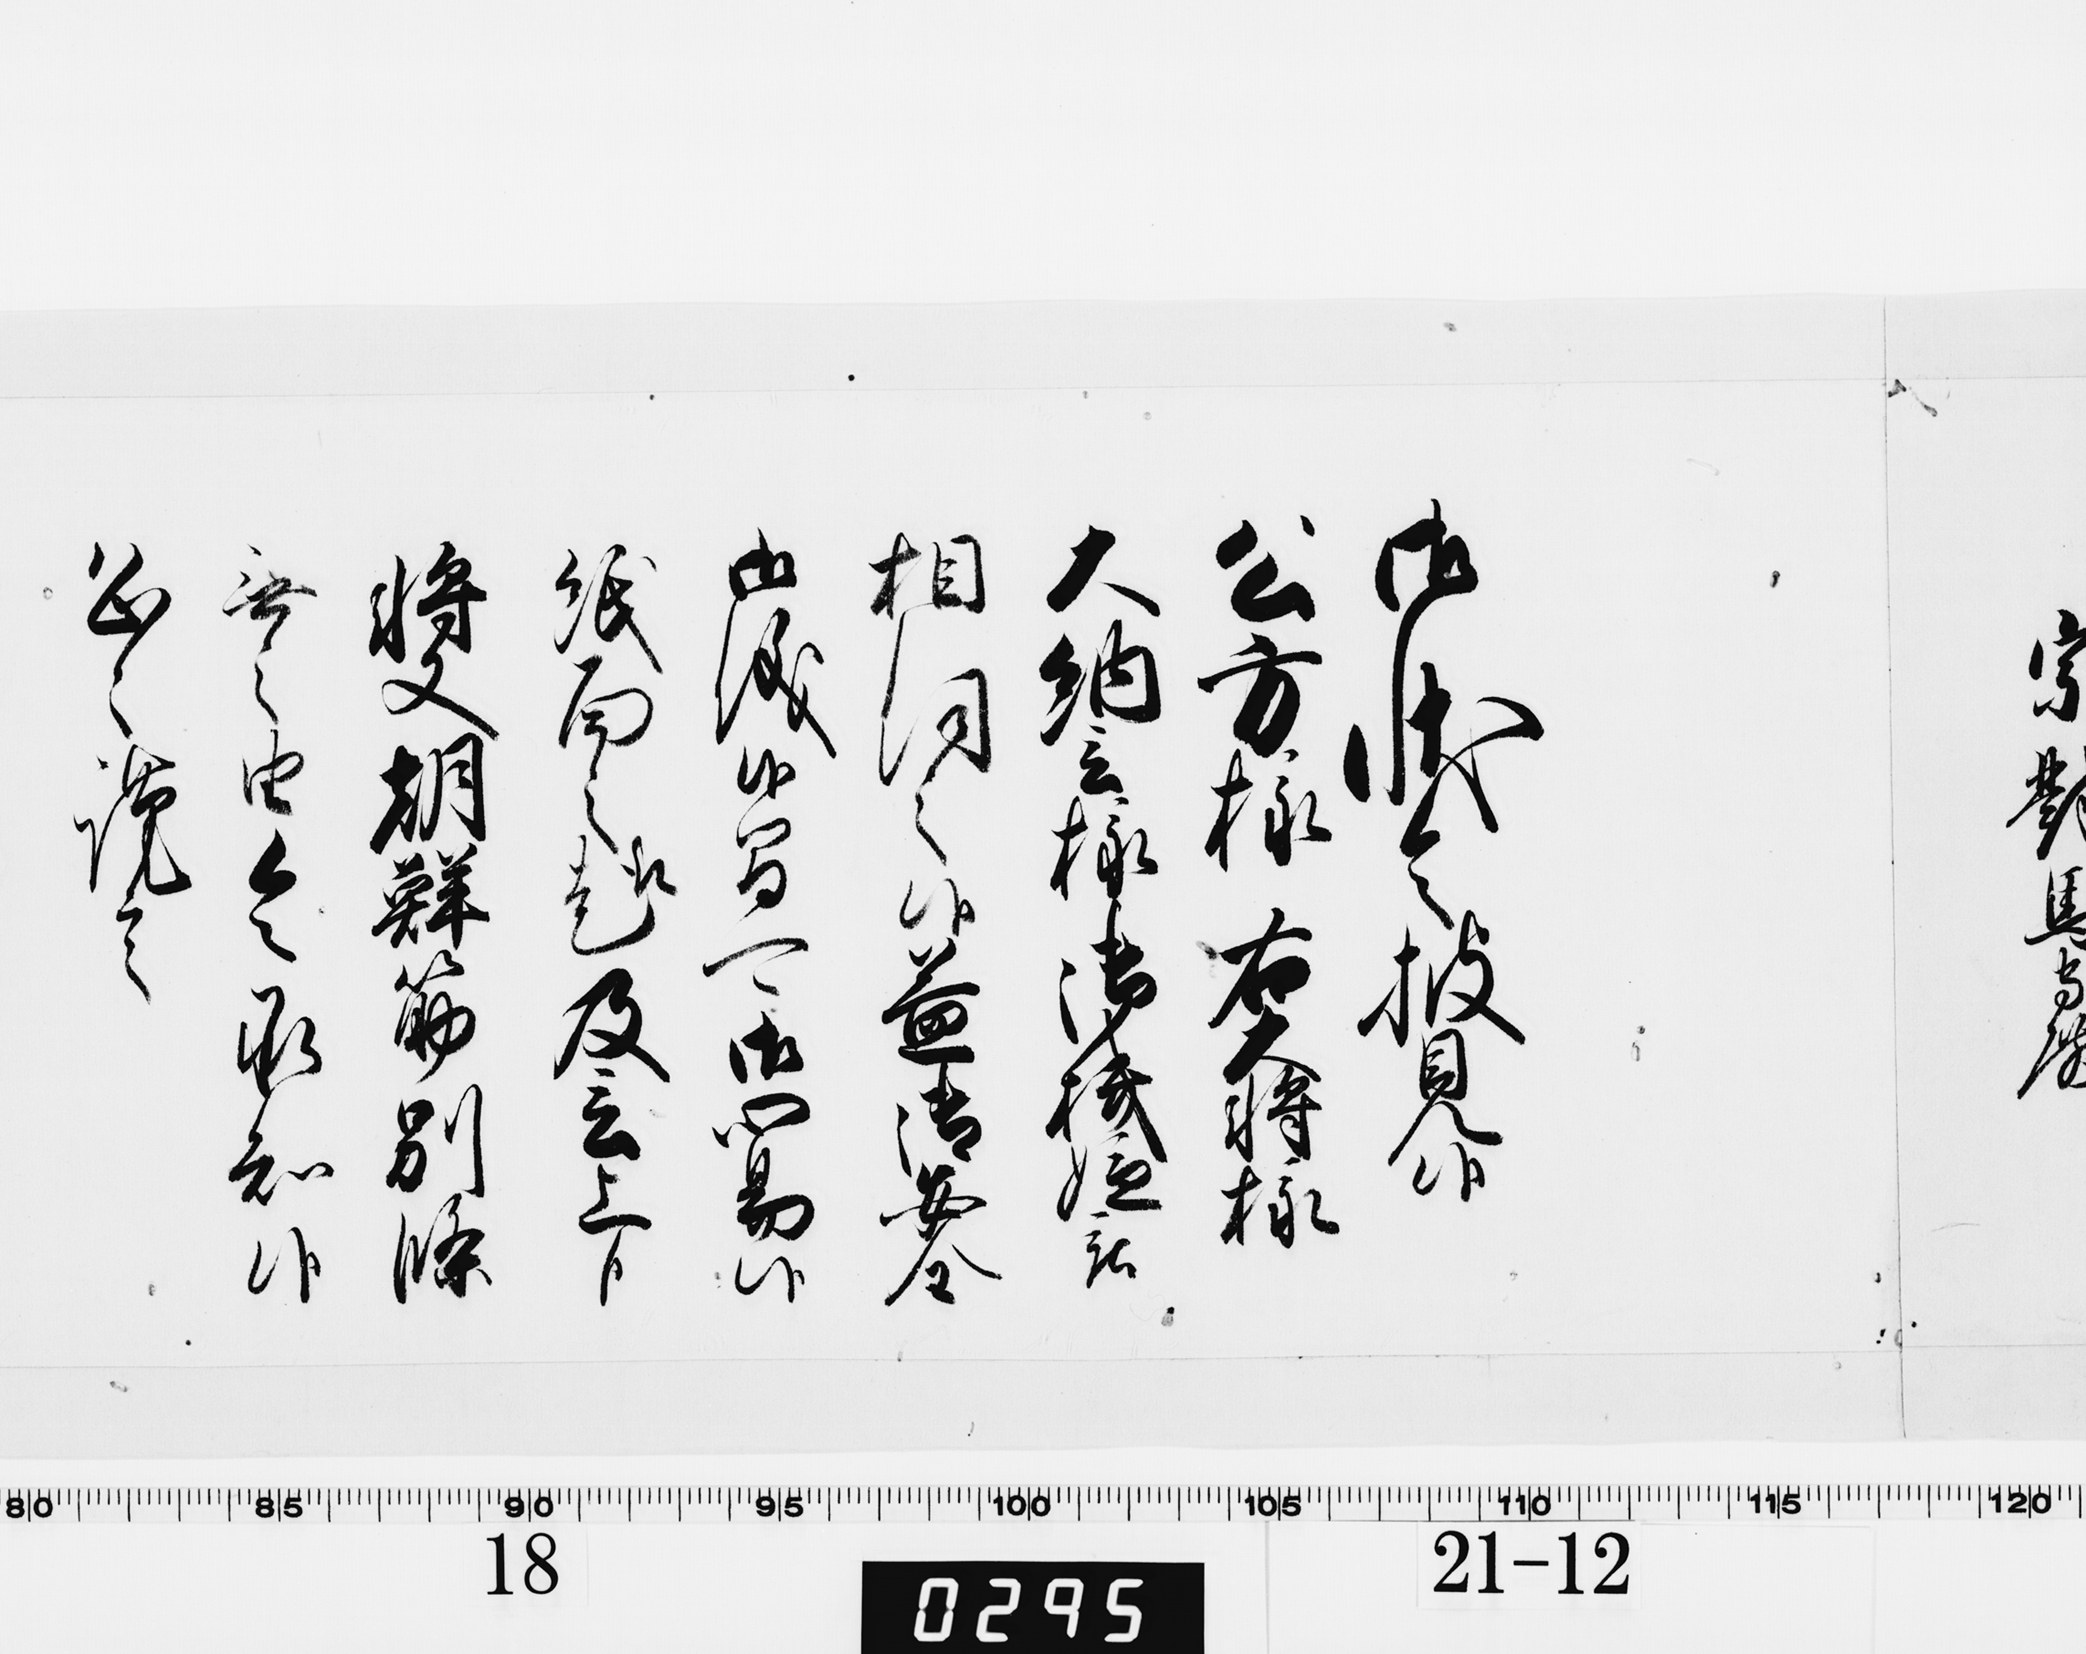 宗對馬守殿
御状令披見候
公方様右大将様
大納言様御機嫌話
相伺之候益御安全
御儀候間可御心易候
紙面之趣及言上候
将又朝鮮筋別條
無之由令承知候
恐々謹言
80 85 90 95 100 105 110 115 120
18
21-12
0295